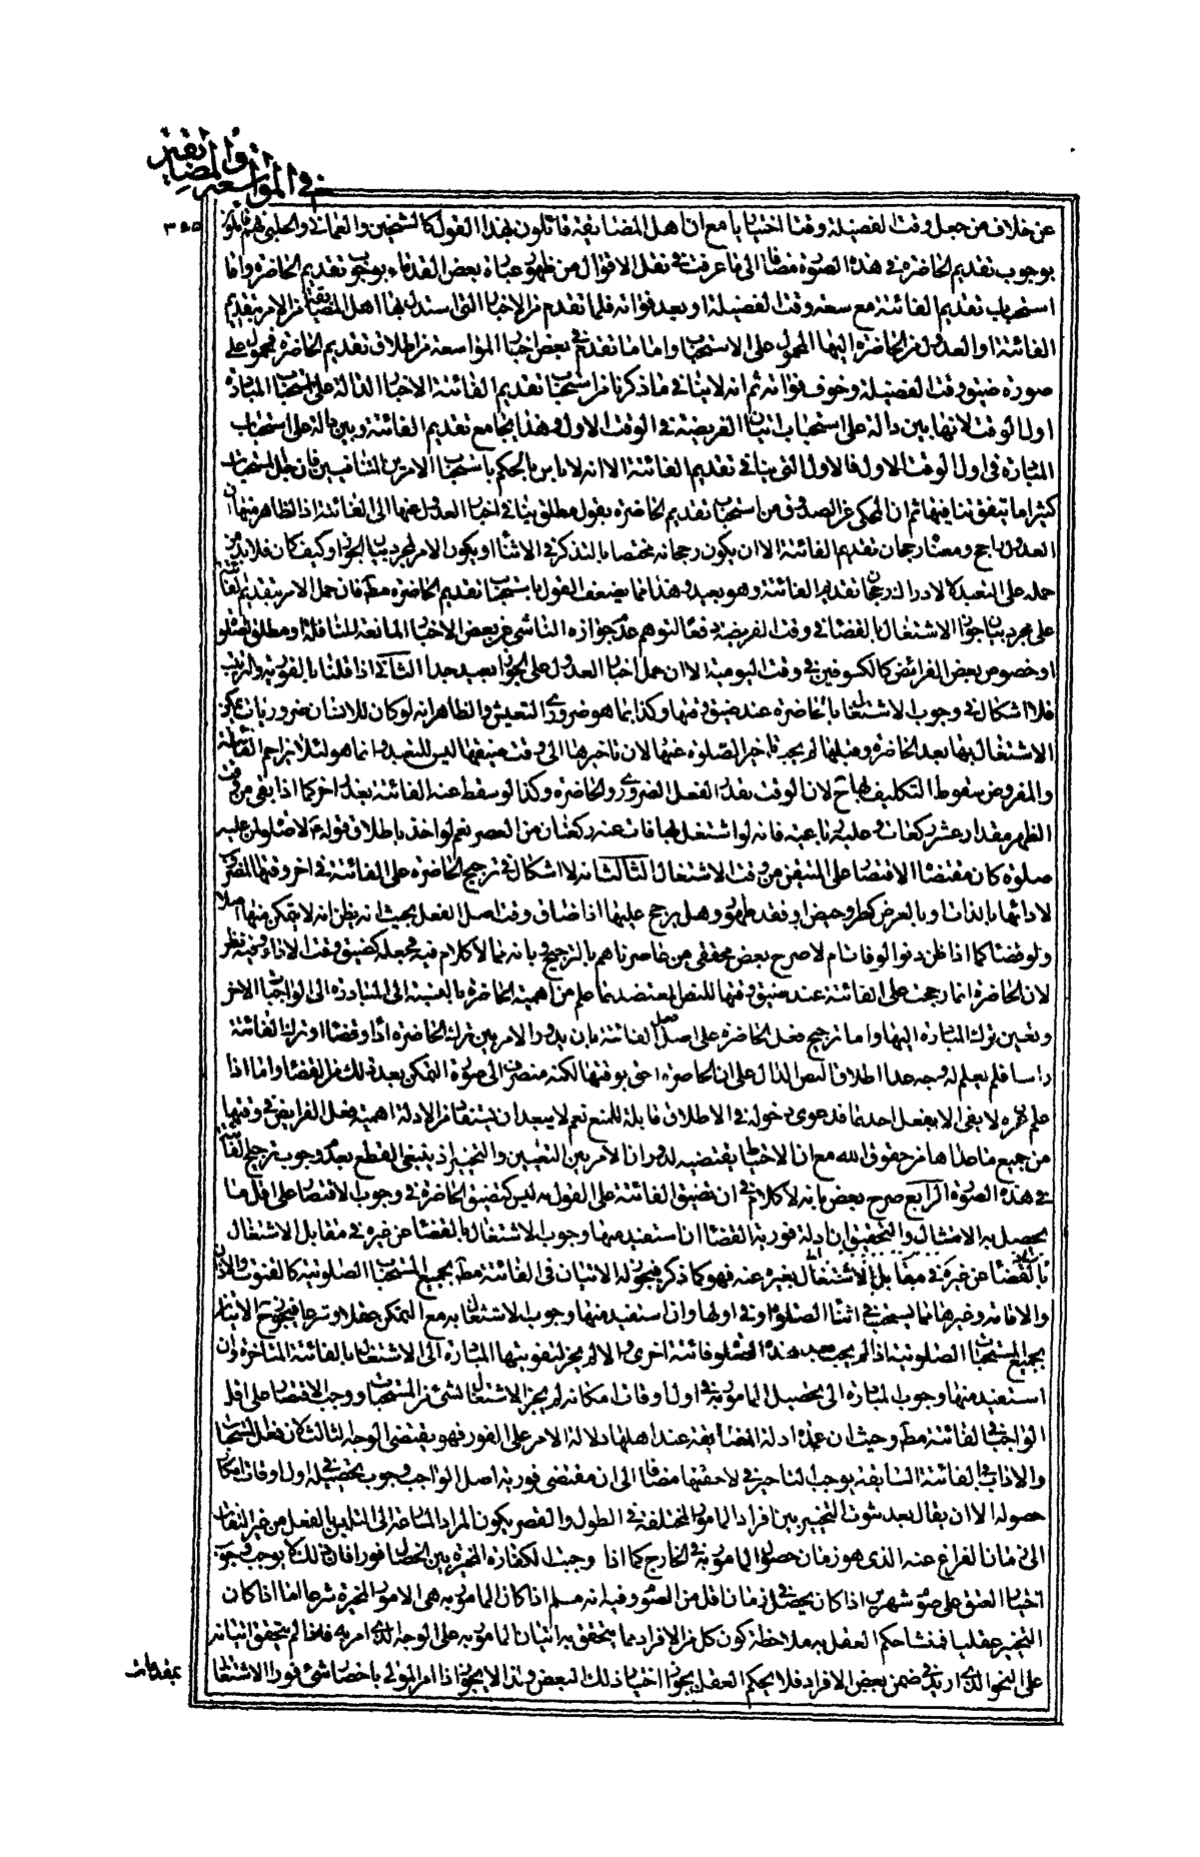 في المواسعة والمضايقة
٣٦٥
عن خلاف من جعل وقت الفضيلة وقتا اختياريا مع ان اهل المضايقة قائلون بهذا القول كالشيخين والعماني والحلبي فهم قائلون
بوجوب تقديم الحاضرة في هذه الصورة مضافا الى ما عرفت في نقل الاقوال من ظهور عبارة بعض القدماء بوجوب تقديم الحاضرة واما
استحباب تقديم الفائتة مع سعة وقت الفضيلة او بعد فواته فلما تقدم من الاخبار التي استدل بها اهل المضايقة من الامر بتقديم
الفائتة او العدول من الحاضرة اليها المحمول على الاستحباب واما ما تقدم في بعض اخبار المواسعة من اطلاق تقديم الحاضرة فمحمول على
صورة ضيق وقت الفضيلة وخوف فواته ثم انه لا ينافي ما ذكرنا من استحباب تقديم الفائتة الاخبار الدالة على استحباب المبادرة
اول الوقت لانها بين دالة على استحباب اتيان الفريضة في الوقت الاول وهذا يجامع تقديم الفائتة وبين دالة على استحباب
المبادرة في اول الوقت الاول فالاول التي ينافي تقديم الفائتة الا انه لا باس بالحكم باستحباب الامرين المتنافيين فان جل المستحبات
كثيرا ما يتفق تنافيها ثم ان المحكي عن الصدوق من استحباب تقديم الحاضرة بقول مطلق ينافي اخبار العدول عنها الى الفائتة اذ الظاهر منها ان
العدول راجح ومنشأ رجحان تقديم الفائتة الا ان يكون رجحانه مختصا بالتذكر في الاثناء او يكون الامر لمجرد بيان الجواز وكيف كان فلا بد من
حمله على التعبد لا لادراك رجحان تقديم الفائتة وهو بعيد وهذا مما يضعف القول باستحباب تقديم الحاضرة مط فان حمل الامر بتقديم الفائتة
على مجرد بيان جواز الاشتغال بالقضاء في وقت الفريضة دفعا لتوهم عدم جوازه الناشي عن بعض الاخبار المانعة للنافلة ومطلق الصلوة
او خصوص بعض الفرائض كالكسوفين في وقت اليومية الا ان حمل اخبار العدول على الجواز بعيد جدا الثاني اذا قلنا بالفورية والترتيب
فلا اشكال في وجوب الاشتغال بالحاضرة عند ضيق وقتها وكذا بما هو ضروري التعيش والظاهر انه لو كان للانسان ضروريات يمكن
الاشتغال بها بعد الحاضرة وقبلها لم يجب تاخير الصلوة عنها لان تاخيرها الى وقت ضيقها ليس للتعبد وانما هو لئلا يزاحم الفائتة
والمفروض سقوط التكليف بها ح لان الوقت بقدر الفعل الضروري والحاضرة وكذا لو سقط عنه الفائتة بعذر اخر كما اذا بقي من وقت
الظهر مقدار عشر ركعات وعليه رباعية فانه لو اشتغل بها فات عنه ركعتان من العصر نعم لو اخذ باطلاق قوله ع لا صلوة لمن عليه
صلوة كان مقتضاه الاقتصار على المتيقن من وقت الاشتغال الثالث انه لا اشكال في ترجيح الحاضرة على الفائتة في اخر وقتها المضروب
لادائها بالذات او بالعرض كطرو حيض او فقد طهور وهل يرجح عليها اذا ضاق وقت اصل الفعل بحيث انه يظن انه لا يتمكن منها اصلا
ولو قضاء كما اذا ظن دنو الوفاة ام لا صرح بعض محققي من عاصرناهم بالترجيح وبانه مما لا كلام فيه فجعله كضيق وقت الاداء وفيه نظر
لان الحاضرة انما رجحت على الفائتة عند ضيق وقتها للنص المعتضد بما علم من اهمية الحاضرة بالنسبة الى المبادرة الى الواجبات الاخر
وتعين ترك المبادرة اليها واما ترجيح فعل الحاضرة على اصل فعل الفائتة بان يدور الامر بين ترك الحاضرة اداء وقضاء او ترك الفائتة
راسا فلم يعلم له وجه عدا اطلاق النص الدال على ان الحاضرة احق بوقتها لكنه منصرف الى صورة التمكن بعد ذلك من القضاء واما اذا
علم بانه لا يبقى الا بفعل احدهما فدعوى دخوله في الاطلاق قابلة للمنع نعم لا يبعد ان يستفاد من الادلة اهمية فعل الفرايض في وقتها
من جميع ما عداها من حقوق الله مع ان الاحتياط يقتضيه لدوران الامر بين التعيين والتخيير اذ ينبغي القطع بعدم وجوب ترجيح الفائتة
في هذه الصورة الرابع صرح بعض بانه لا كلام في ان تضيق الفائتة على القول به ليس كتضيق الحاضرة في وجوب الاقتصار على اقل ما
يحصل به الامتثال والتحقيق ان ادلة فورية القضاء ان استفيد منها وجوب الاشتغال بالقضاء عن غيره في مقابل الاشتغال
بالقضاء عن غيره في مقابل الاشتغال بغيره عنه فهو كما ذكر فيجوز له الاتيان في الفائتة مط بجميع المستحبات الصلوتية كالقنوت والاذان
والاقامة وغيرها مما يستحب في اثناء الصلوة او في اولها وان استفيد منها وجوب الاشتغال به مع التمكن عقلا وشرعا فيجوز ح الاتيان
بجميع المستحبات الصلوتية اذا لم يجب بعد هذه الصلوة فائتة اخرى والا لم يجز لتفويتها المبادرة الى الاشتغال بالفائتة المتاخرة وان
استفيد منها وجوب المبادرة الى تحصيل المامور به في اول اوقات امكانه لم يجز الاشتغال بشئ من المستحبات ووجب الاقتصار على اقل
الواجب في الفائتة مط وحيث ان عمدة ادلة المضايقة عند اهلها دلالة الامر على الفور فهو يقتضي الوجه الثالث لان فعل المستحبات
والاداب في الفائتة السابقة يوجب التاخير في لاحقتها مضافا الى ان مقتضى فورية اصل الواجب وجوب تحصيله في اول اوقات امكان
حصوله الا ان يقال بعد ثبوت التخيير بين افراد المامور به المختلفة في الطول والقصر يكون المراد المسارعة الى التلبس بالفعل من غير التفات
الى زمان الفراغ عنه الذي هو زمان حصول المامور به في الخارج كما اذا وجبت الكفارة المخيرة بين الخصال فورا فان ذلك لا يوجب وجوب
اختيار العتق على صوم شهرين اذا كان يحصل في زمان اقل من الصوم وفيه انه مسلم اذا كان المامور به هي الامور المخيرة شرعا اما اذا كان
التخيير عقليا فمنشا حكم العقل به ملاحظة كون كل من الافراد مما يتحقق به اتيان المامور به على الوجه الذي امر به فاذا لم يتحقق اتيانه
على النحو الذي اريد في ضمن بعض الافراد فلا يحكم العقل بجواز اختيار ذلك البعض ولذا لا يجوز اذا امر المولى باحضار شئ فورا الاشتغال
بمقدمات